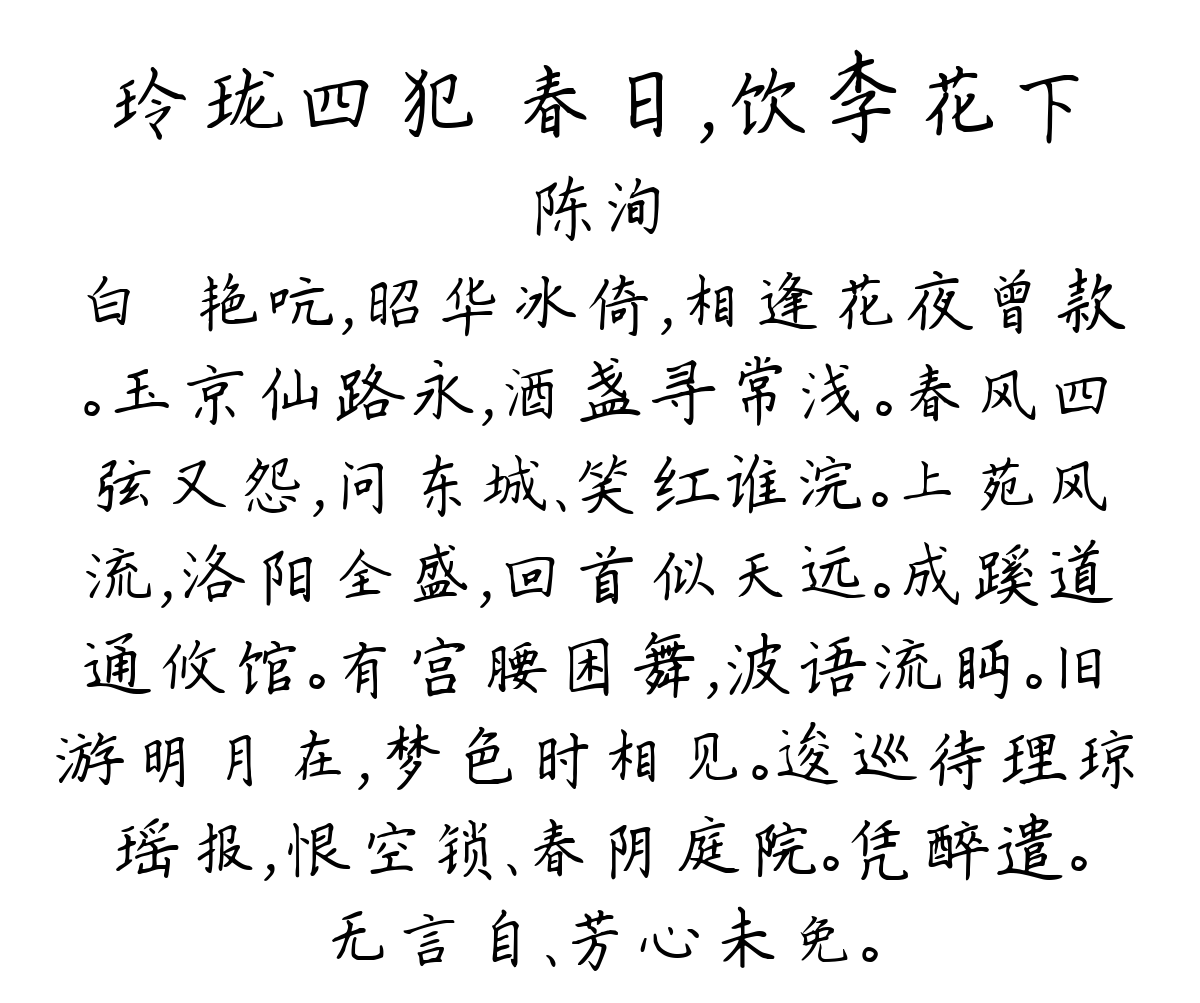 玲珑四犯 春日,饮李花下
陈洵
白 艳吭,昭华冰倚,相逢花夜曾款
。玉京仙路永,酒盏寻常浅。春风四
弦又怨,问东城、笑红谁浣。上苑风
流,洛阳全盛,回首似天远。成蹊道
通攸馆。有宫腰困舞,波语流眄。旧
游明月在,梦色时相见。逡巡待理琼
瑶报,恨空锁、春阴庭院。凭醉遣。
无言自、芳心未免。